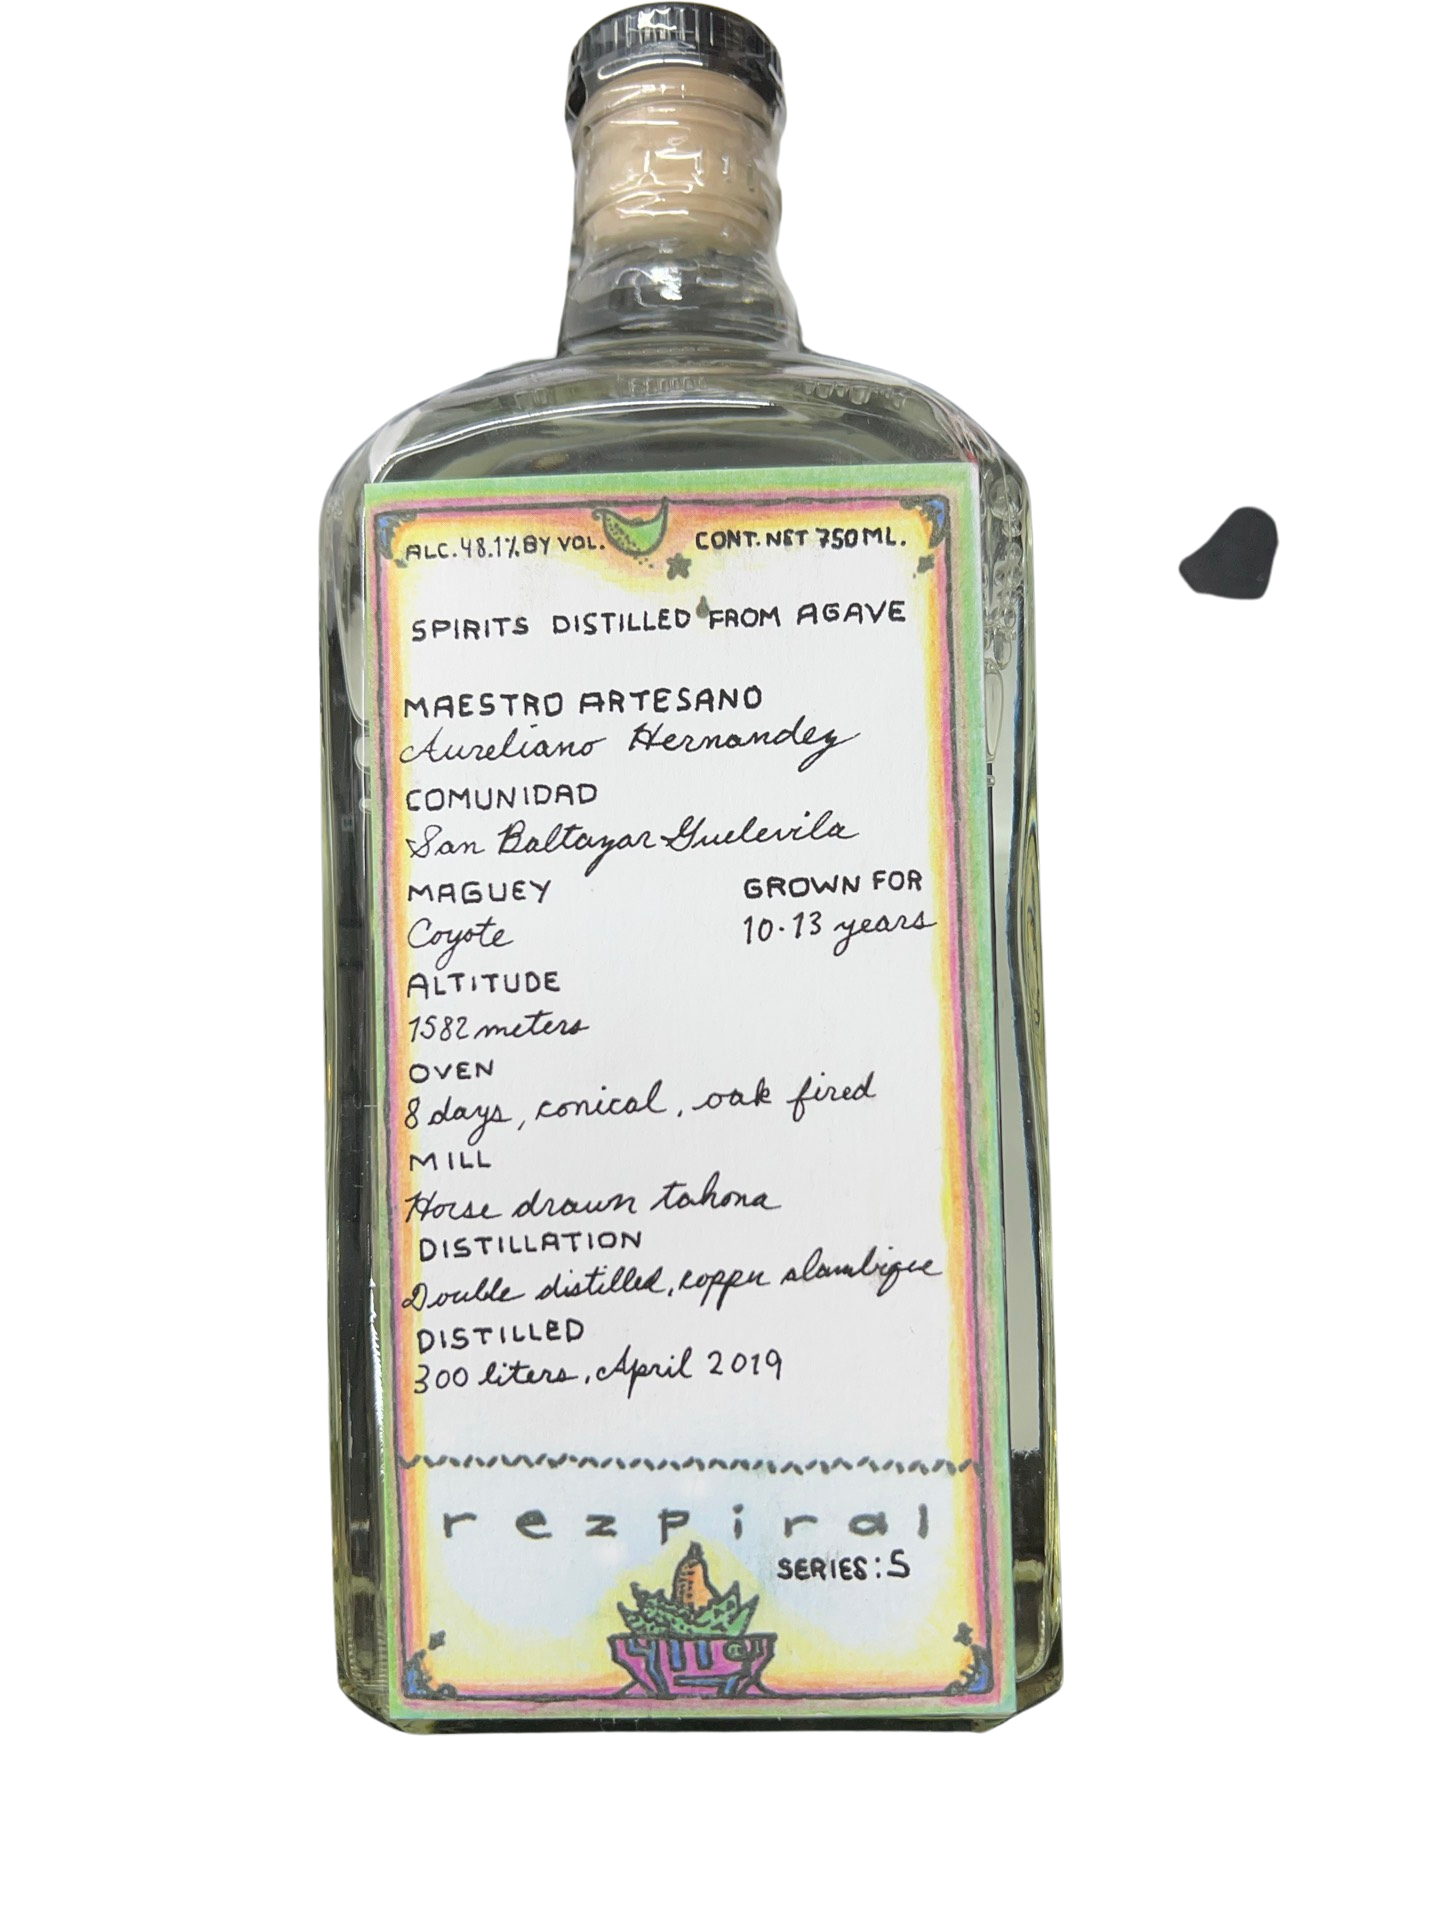 ALC. 48.1% BY VOL. CONT. NET 750 ML.
SPIRITS DISTILLED FROM AGAVE
MAESTRO ARTESANO
Aureliano Hernandez
COMUNIDAD
San Baltazar Guelevila
MAGUEY GROWN FOR
Coyote 10-13 years
ALTITUDE
1582 meters
OVEN
8 days, conical, oak fired
MILL
Horse drawn tahona
DISTILLATION
Double distilled, copper alambique
DISTILLED
300 liters, April 2019
rezpiral
SERIES: S